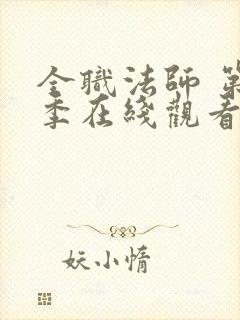 全職法師 第
季在綫觀看
妖小惰